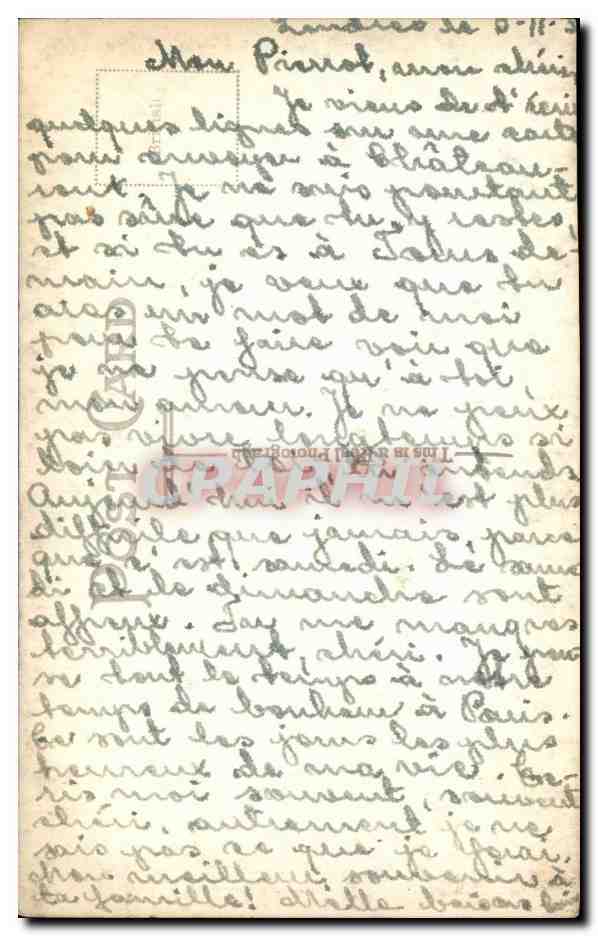 Londres le 6-11-3
Mon Pierrot, mon chéri,
Je viens de t'écrire
quelques lignes sur une carte
pour envoyer à Château-
roux. Je ne suis pourtant
pas sûre que tu y restes,
et si tu es à Tours de-
main, je veux que tu
aies un mot de moi
pour te faire voir que
je ne pense qu'à toi,
mon amour. Je ne peux
pas vivre longtemps si
loin de toi
Aujourd'hui il m'est plus
difficile que jamais, parce
que c'est samedi. Le same-
di et le dimanche sont
affreux. Tu me manques
terriblement, chéri. Je pen-
se tout le temps à notre
temps de bonheur à Paris.
Ce sont les jours les plus
heureux de ma vie. Ec-
ris moi souvent, souvent
chéri, autrement je ne
sais pas ce que je ferai.
Mon meilleur souvenir à
ta famille! Mille baisers
POST CARD
This is a Real Photograph
British
CPAPHIL